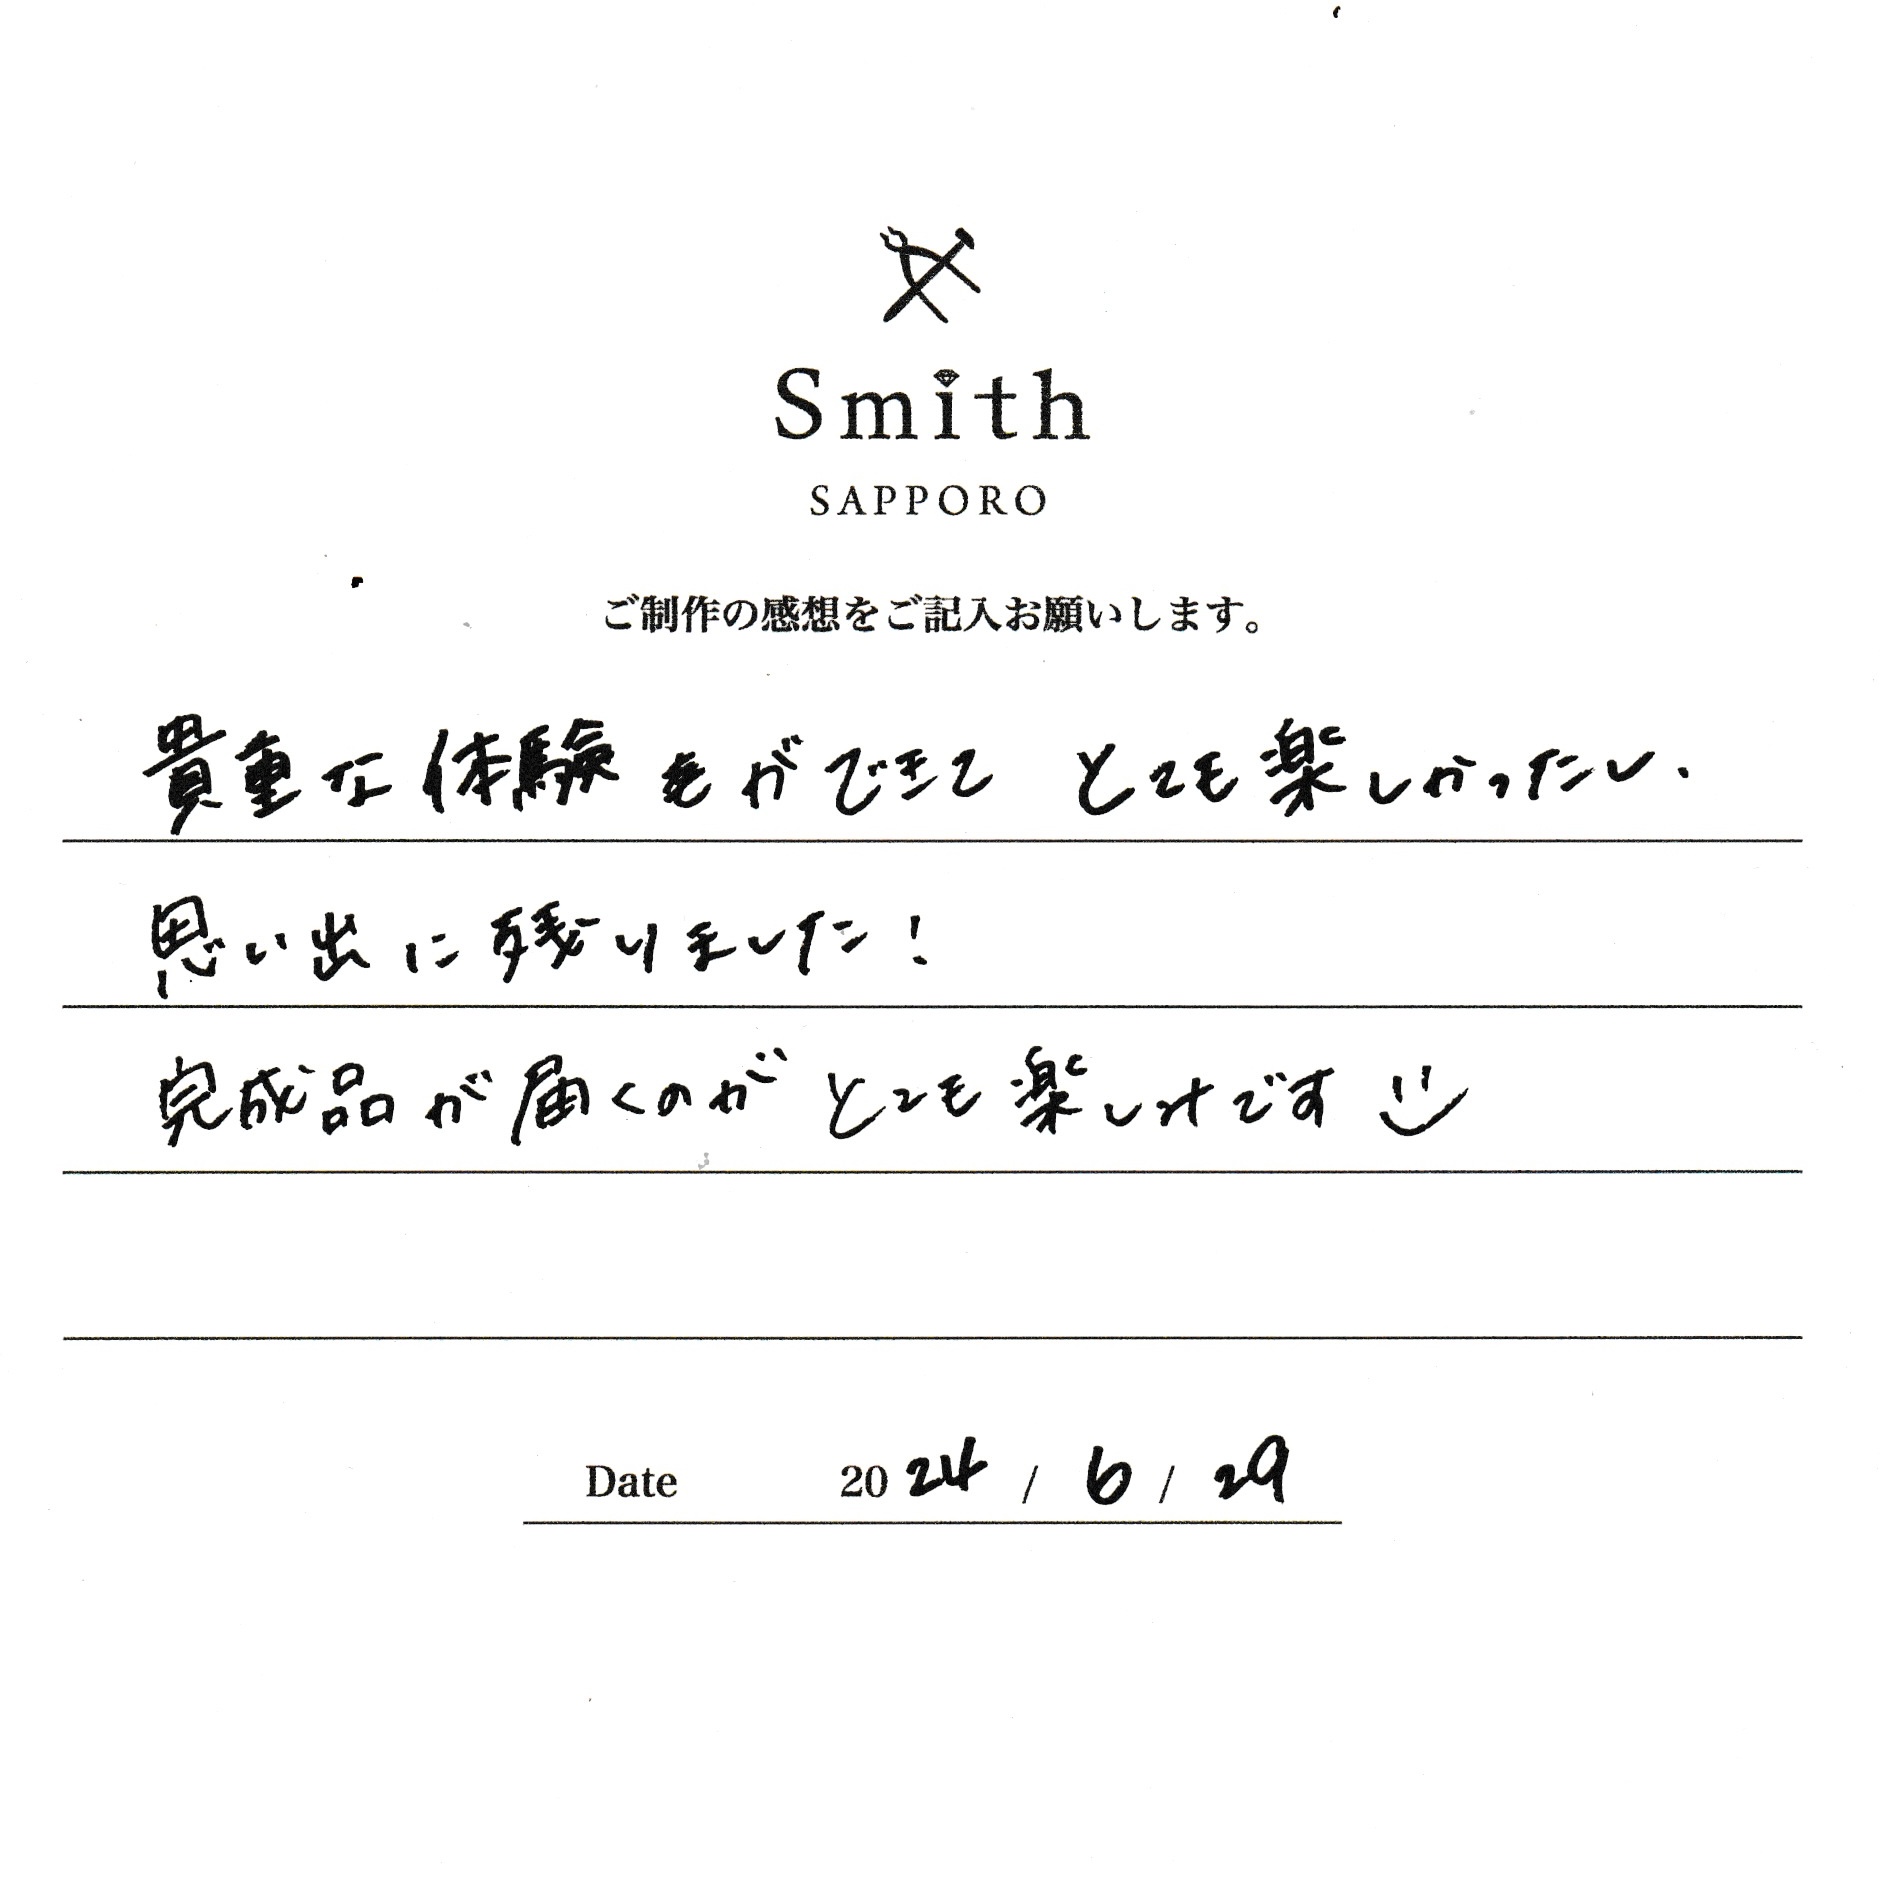 Smith
SAPPORO
ご制作の感想をご記入お願いします。
貴重な体験をができて とても楽しかったし.
思い出に残りました!
完成品が届くのが とても楽しみです
Date 2024 / 6 / 29